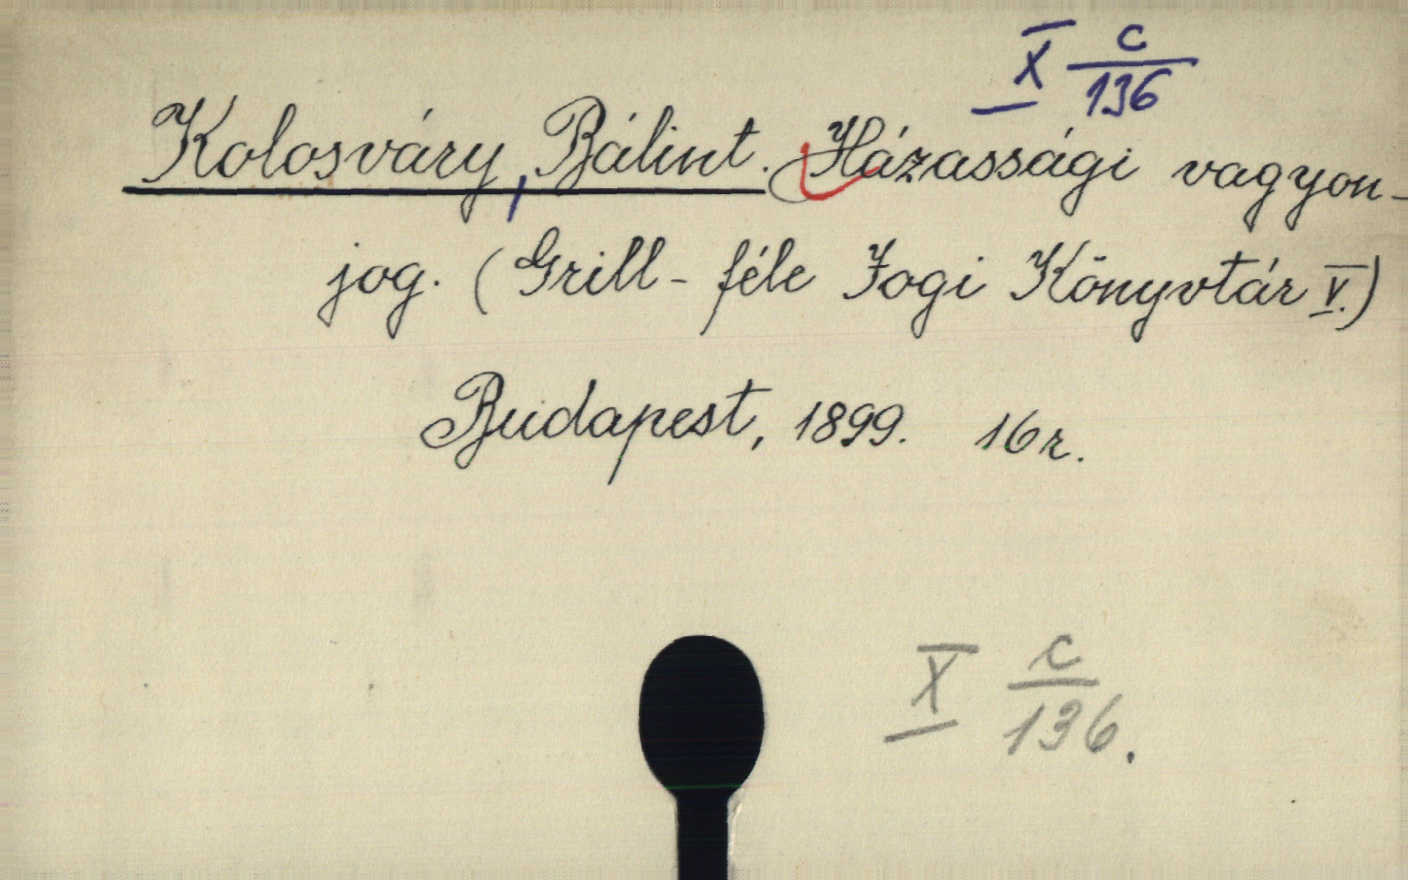 X c/136
Kolosváry, Bálint. Házassági vagyon-
jog. (Grill-féle Jogi Könyvtár V.)
Budapest, 1899. 16r.
X c/136.